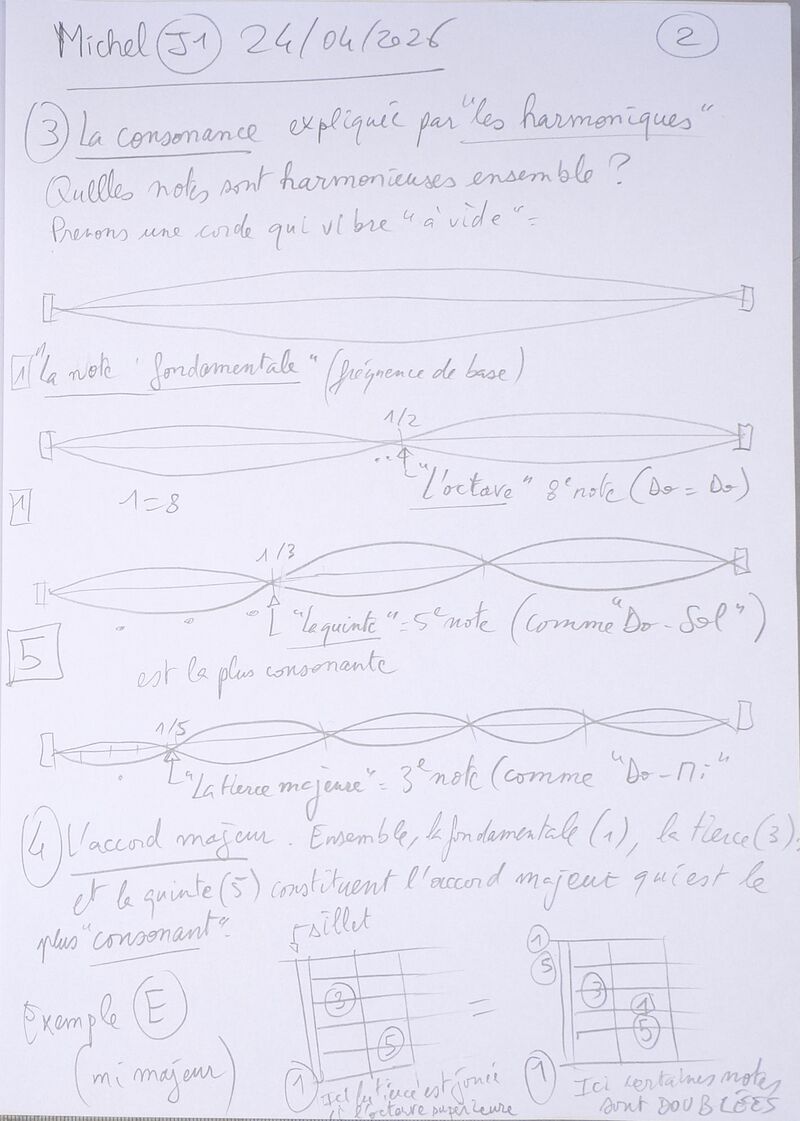 Michel J1 24/04/2026
2
3 La consonance expliquée par "les harmoniques"
Quelles notes sont harmonieuses ensemble ?
Prenons une corde qui vibre "à vide" =
1 "La note fondamentale" (fréquence de base)
1/2
"L'octave" 8e note (Do = Do)
1 1=8
1/3
"la quinte" = 5e note (comme "Do - Sol")
5 est la plus consonante
1/5
"La tierce majeure" = 3e note (comme "Do - Mi"
4 L'accord majeur. Ensemble, la fondamentale (1), la tierce (3),
et la quinte (5) constituent l'accord majeur qui est le
plus "consonant".
sillet
Exemple E
(mi majeur)
3
5
1
=
1
5
3
1
5
1
Ici la tierce est jouée
à l'octave supérieure
Ici certaines notes
sont DOUBLÉES